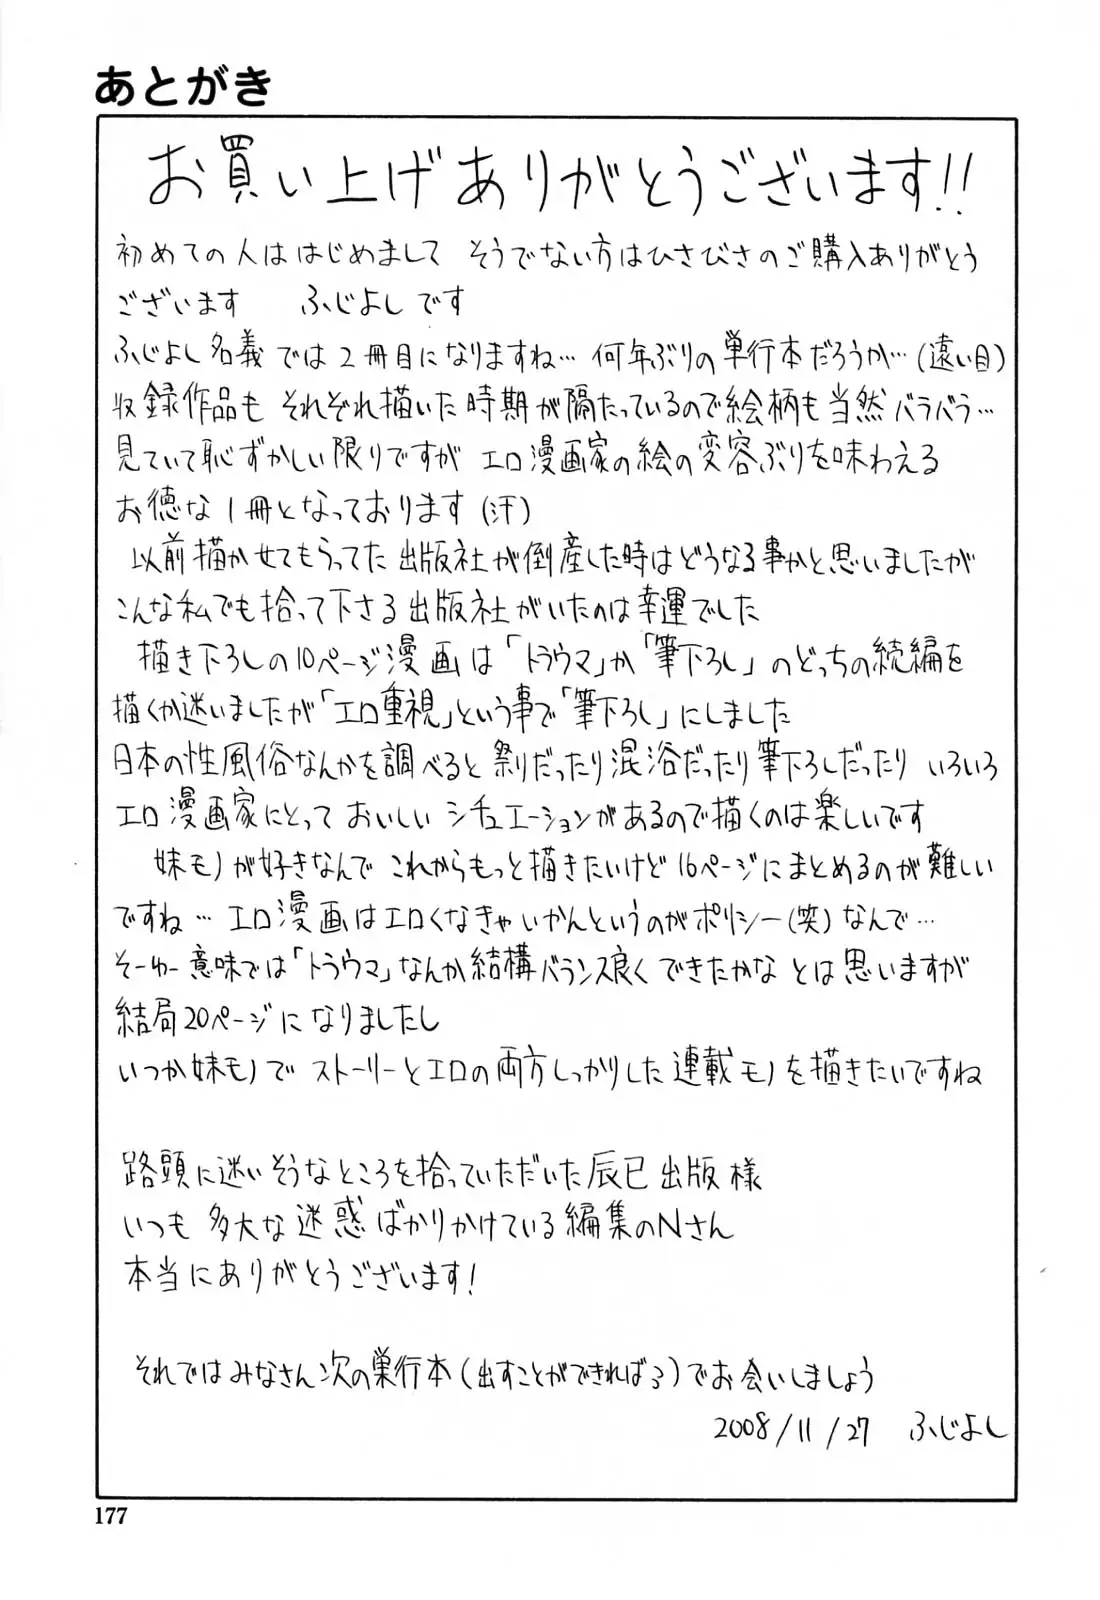 あとがき
お買い上げありがとうございます!!
初めての人ははじめまして そうでない方はひさびさのご購入ありがとう
ございます ふじよしです
ふじよし名義では2冊目になりますね… 何年ぶりの単行本だろうか…(遠い目)
収録作品も それぞれ描いた時期が隔たっているので絵柄も当然バラバラ…
見ていて恥ずかしい限りですが エロ漫画家の絵の変容ぶりを味わえる
お徳な1冊となっております(汗)
以前描かせてもらってた出版社が倒産した時はどうなる事かと思いましたが
こんな私でも拾って下さる出版社がいたのは幸運でした
描き下ろしの10ページ漫画は「トラウマ」か「筆下ろし」のどっちの続編を
描くか迷いましたが「エロ重視」という事で「筆下ろし」にしました
日本の性風俗なんかを調べると祭りだったり混浴だったり筆下ろしだったり いろいろ
エロ漫画家にとって おいしい シチュエーションがあるので描くのは楽しいです
妹モノが好きなんで これからもっと描きたいけど16ページにまとめるのが難しい
ですね… エロ漫画はエロくなきゃいかんというのがポリシー(笑)なんで…
そーゆー意味では「トラウマ」なんか結構バランス良くできたかな とは思いますが
結局20ページになりましたし
いつか妹モノで ストーリーとエロの両方しっかりした連載モノを描きたいですね
路頭に迷いそうなところを拾っていただいた辰巳出版様
いつも多大な迷惑ばかりかけている編集のNさん
本当にありがとうございます!
それではみなさん次の単行本(出すことができればろ)でお会いしましょう
2008/11/27 ふじよし
177